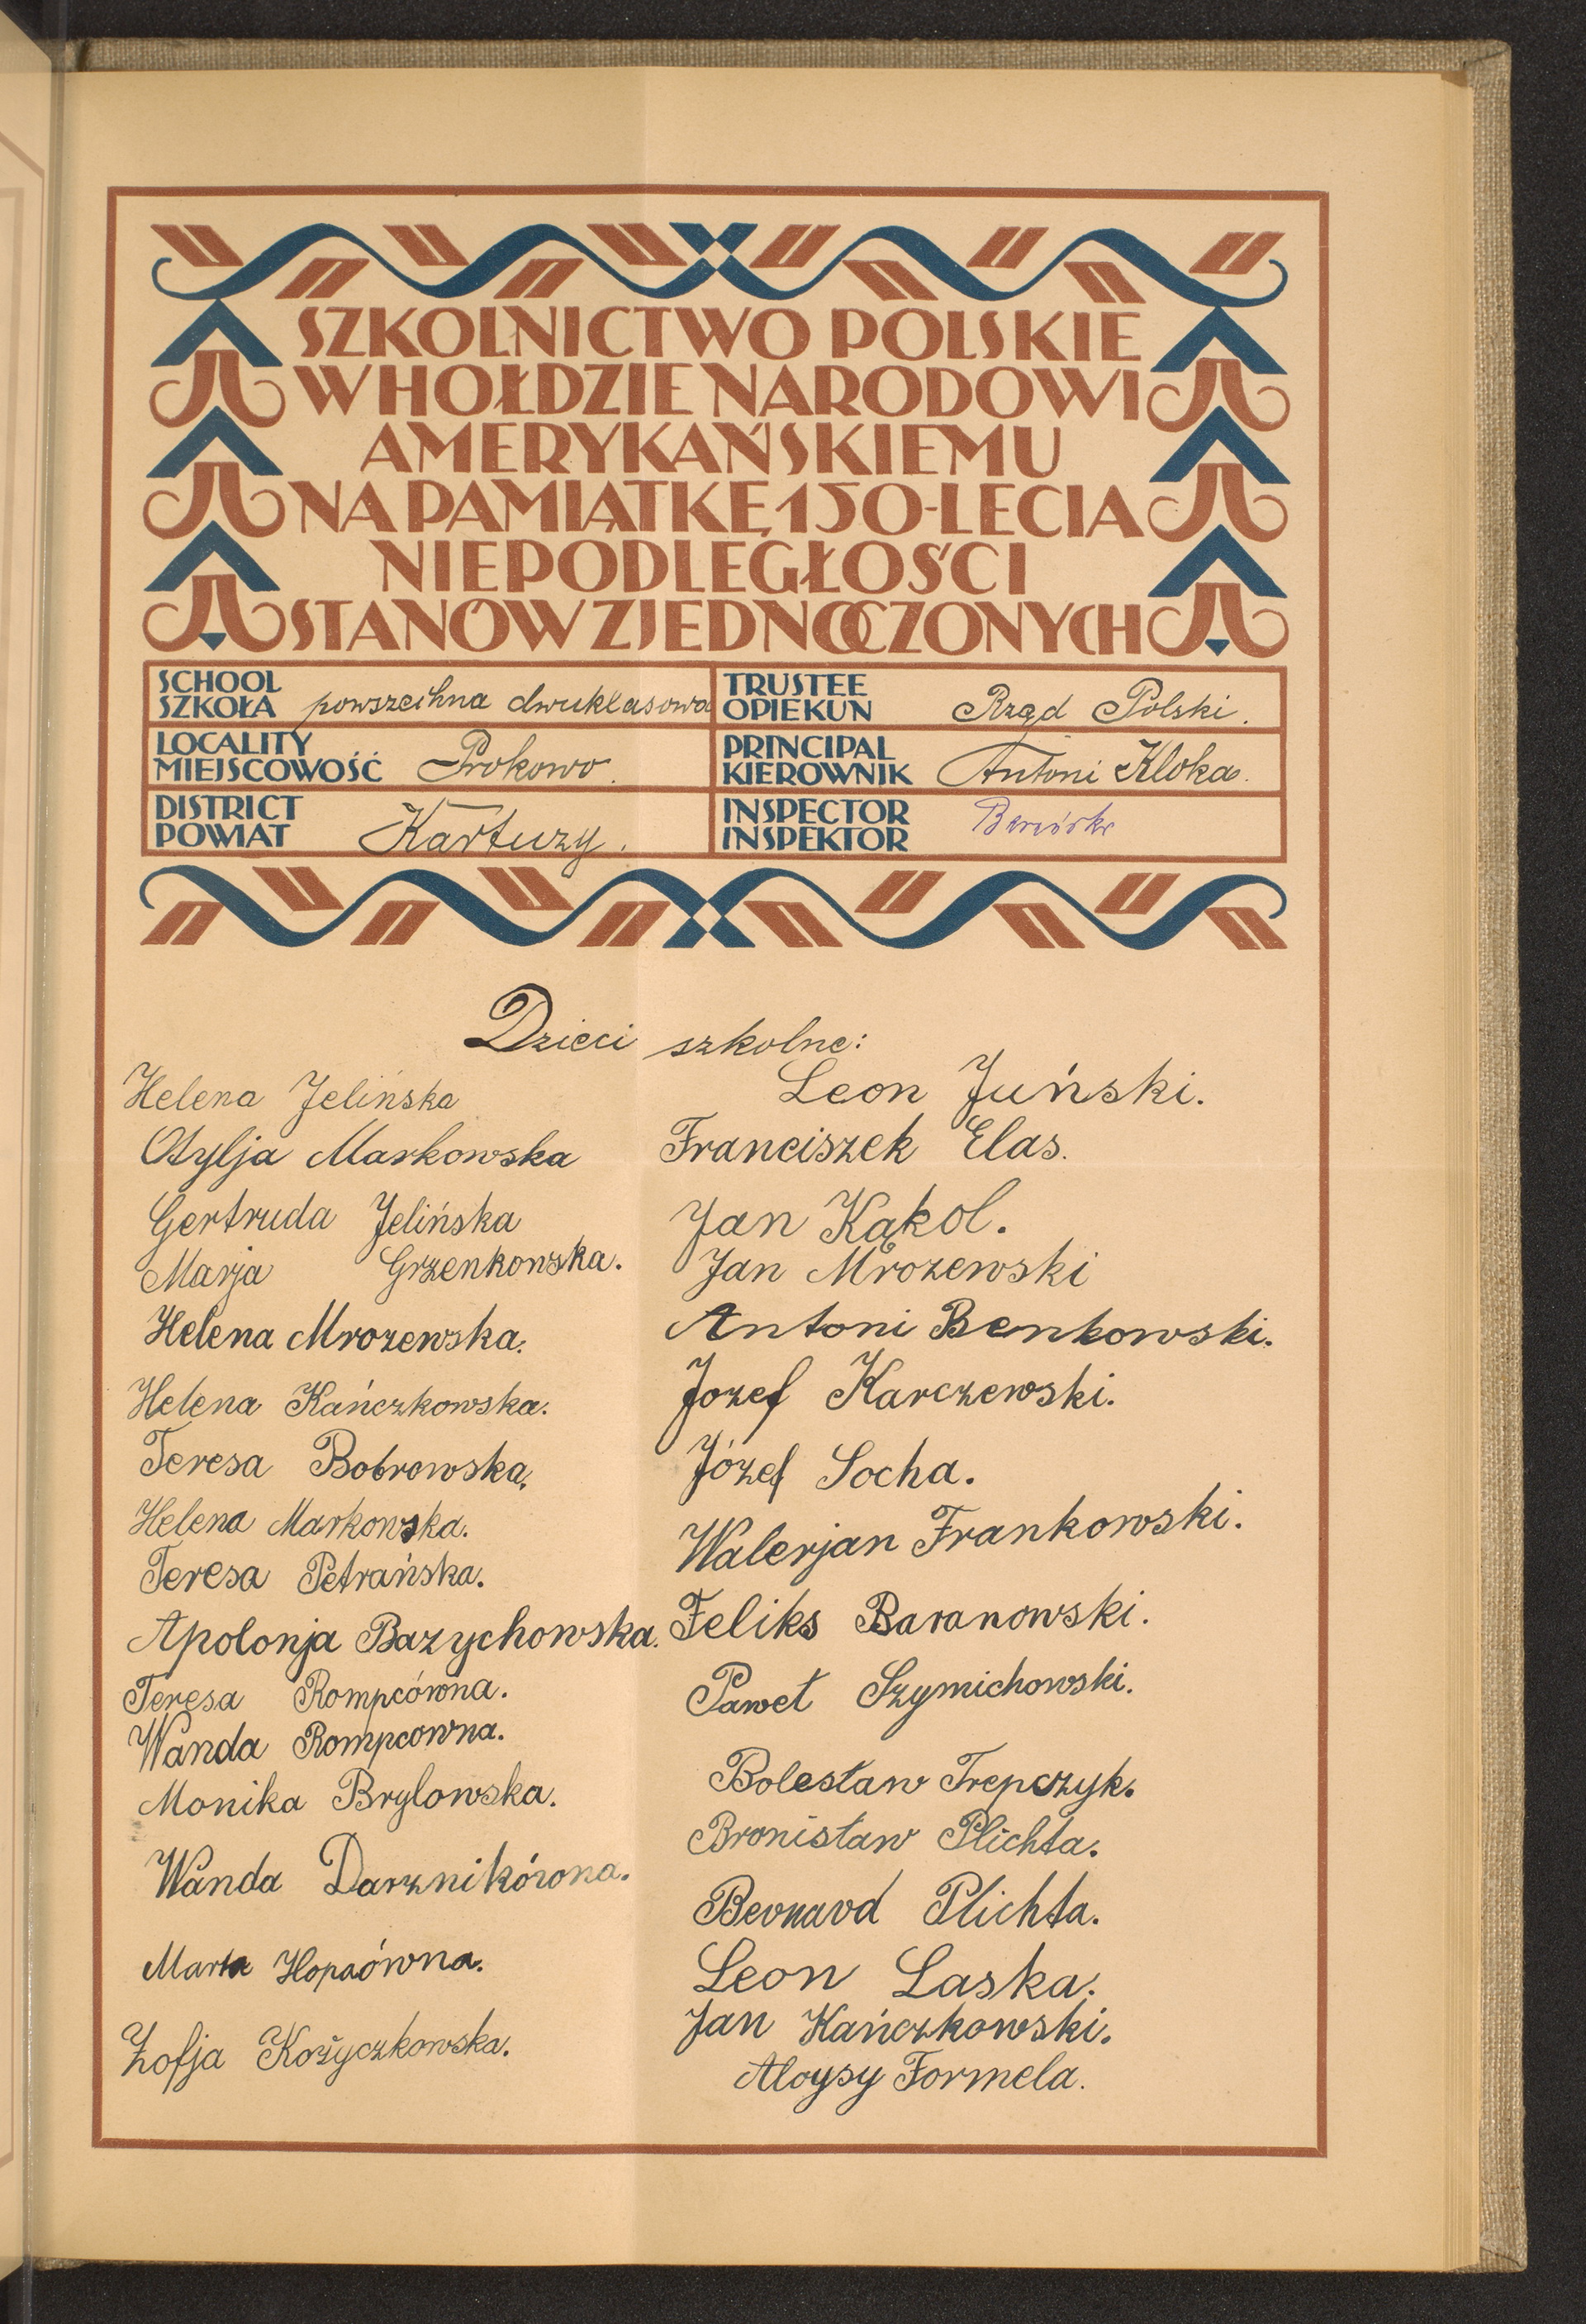 SZKOLNICTWO POLSKIE
W HOŁDZIE NARODOWI
AMERYKAŃSKIEMU
NA PAMIĄTKĘ 150-LECIA
NIEPODLEGŁOŚCI
STANÓW ZJEDNOCZONYCH
SCHOOL
SZKOŁA powszechna dwuklasowa
LOCALITY
MIEJSCOWOŚĆ Prokowo.
DISTRICT
POWIAT Kartuzy.
TRUSTEE
OPIEKUN Rząd Polski.
PRINCIPAL
KIEROWNIK Antoni Kloka.
INSPECTOR
INSPEKTOR
Dzieci szkolne:
Helena Jelińska
Otylja Markowska
Gertruda Jelińska
Marja Grzenkowska.
Helena Mrozewska.
Helena Kańczkowska.
Teresa Bobrowska.
Helena Markowska.
Teresa Petrańska.
Apolonja Bazychowska.
Teresa Rompcówna.
Wanda Rompcowna.
Monika Brylowska.
Wanda Darznikówna.
Marta
Zofja Kożyczkowska.
Leon Juński.
Franciszek Elas.
Jan Kąkol.
Jan Mrozewski
Antoni Benkowski.
Jozef Karczewski.
Józef Socha.
Walerjan Frankowski.
Feliks Baranowski.
Paweł Szymichowski.
Bolesław Trepczyk.
Bronisław Plichta.
Bernard Plichta.
Leon Laska.
Jan Kańczkowski.
Aloysy Formela.